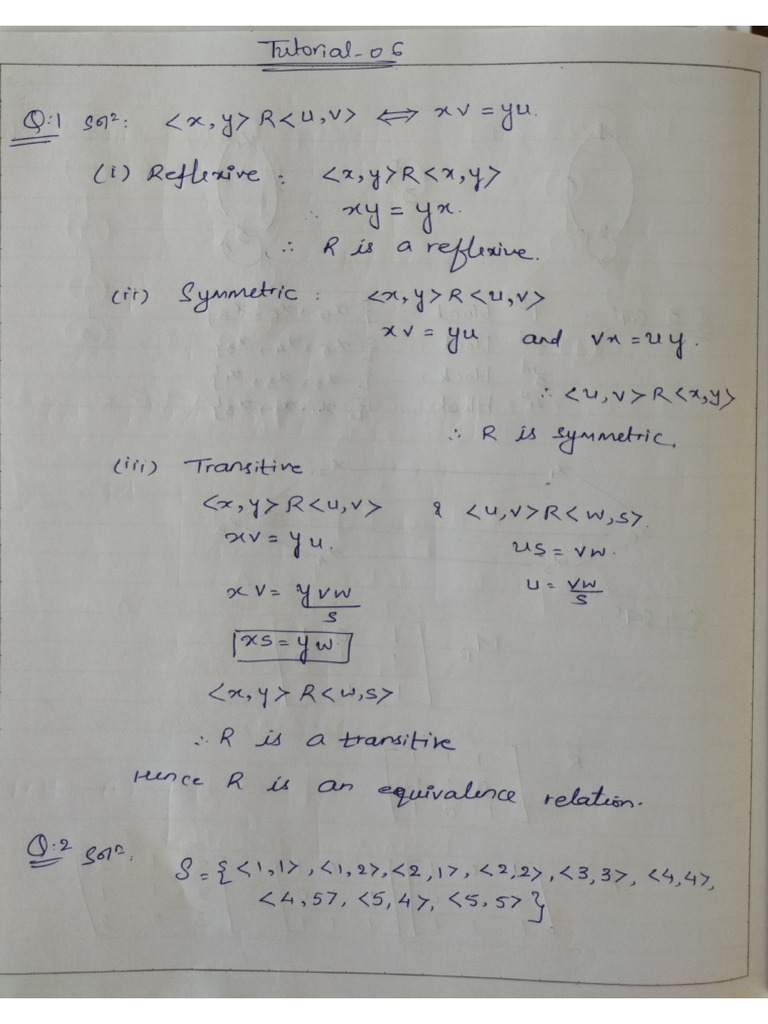 Tutorial-06
Q:1 Solⁿ: <x,y> R <u,v> ⟺ xv = yu.
(i) Reflexive : <x,y> R <x,y>
xy = yx.
∴ R is a reflexive.
(ii) Symmetric : <x,y> R <u,v>
xv = yu and vx = uy.
∴ <u,v> R <x,y>
∴ R is symmetric.
(iii) Transitive
<x,y> R <u,v> & <u,v> R <w,s>.
xv = yu. us = vw.
xv = yvw/s u = vw/s
xs = yw
<x,y> R <w,s>
∴ R is a transitive
Hence R is an equivalence relation.
Q:2 Solⁿ. S = {<1,1>, <1,2>, <2,1>, <2,2>, <3,3>, <4,4>,
<4,5>, <5,4>, <5,5>}